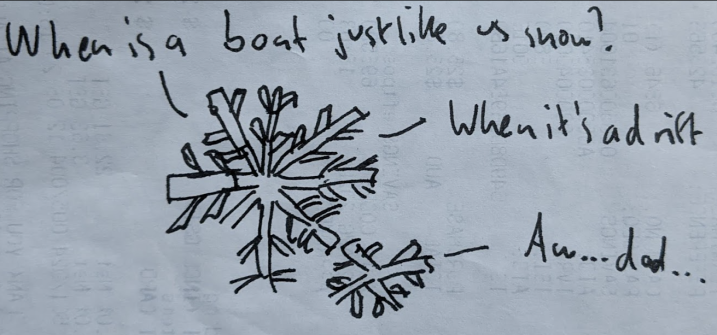 When is a boat just like us snow?
When it's adrift
Aw...dad...